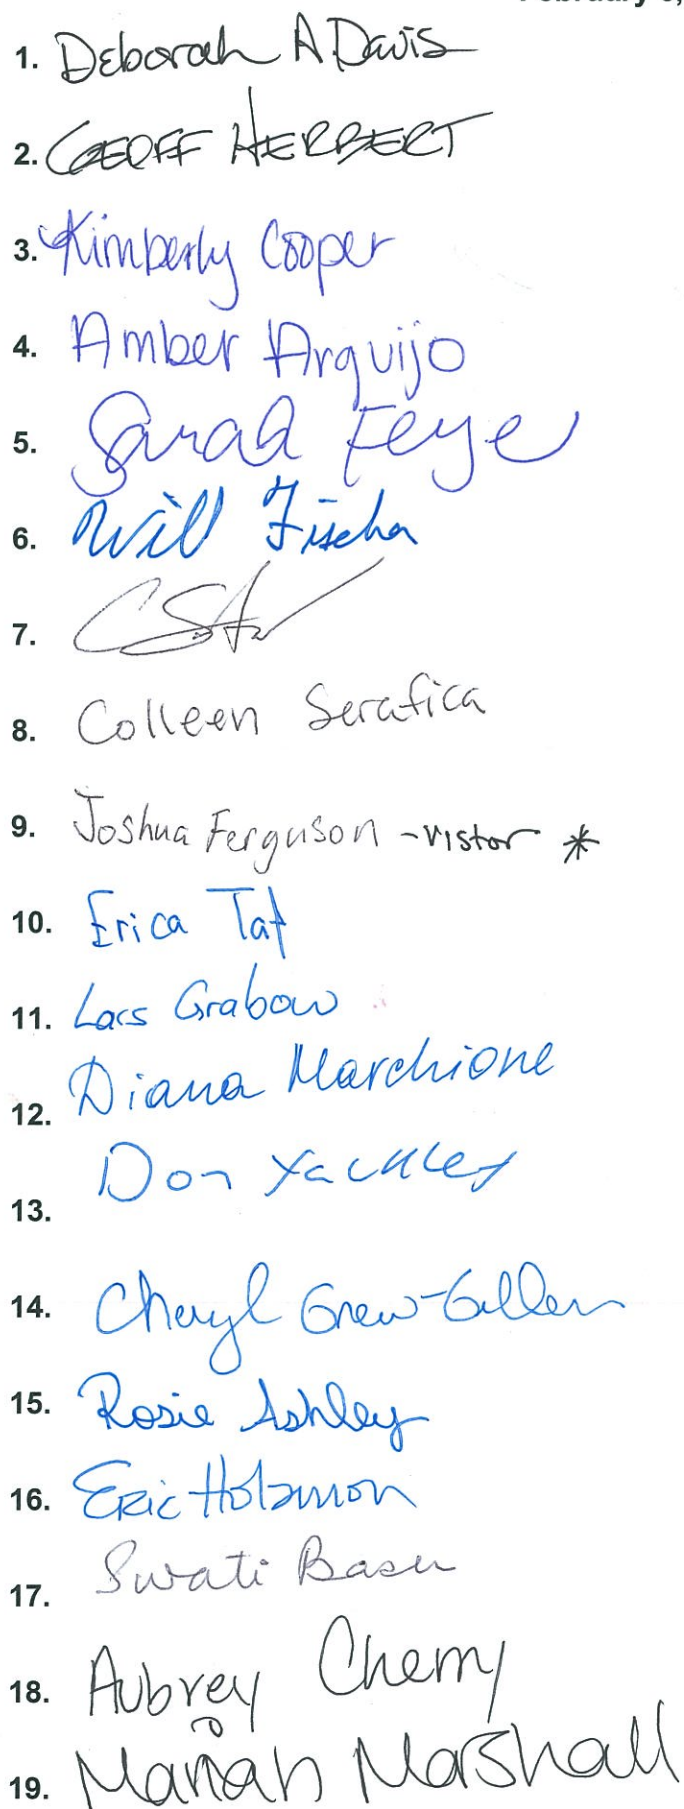 1. Deborah A Davis
2. GEOFF HERBERT
3. Kimberly Cooper
4. Amber Arguijo
5. Sarah Feye
6. Will Fischer
7.
8. Colleen Serafica
9. Joshua Ferguson - vistor *
10. Erica Tat
11. Lars Grabow
12. Diana Marchione
13. Don Yackley
14. Cheryl Grew-Gillen
15. Rosie Ashley
16. Eric Holzmon
17. Swati Basu
18. Aubrey Cherry
19. Mariah Marshall